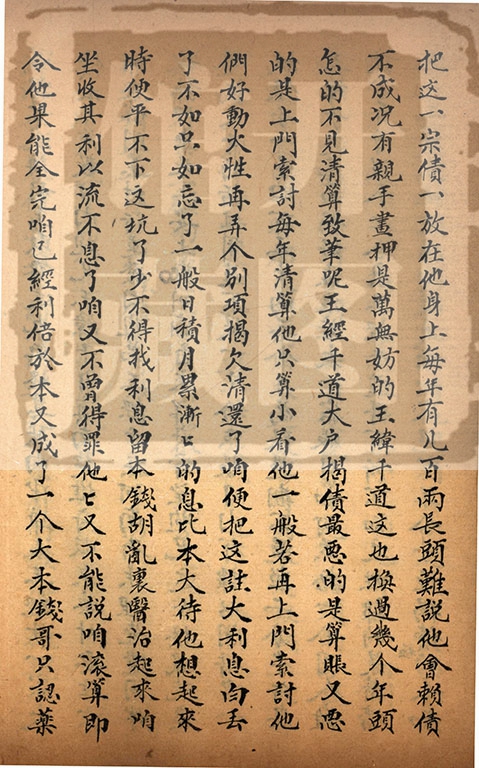 把这一宗債一放在他身上每年有几百兩長頭難説他會賴債
不成况有親手畫押是萬無妨的王緯千道这也換過幾个年頭
怎的不見清算致筆呢王經千道大户揭債最悪的是算賬又悪
的是上門索討每年清算他只算小看他一般若再上門索討他
們好動火性再弄个别項揭欠清還了咱便把这註大利息白丢
了不如只如忘了一般日積月累漸〻的息比本大待他想起來
時便平不下这坑了少不得找利息留本錢胡亂裏醫治起來咱
坐收其利以流不息了咱又不曾得罪他〻又不能説咱滚算即
令他果能全完咱已經利倍於本又成了一个大本錢哥只認藥